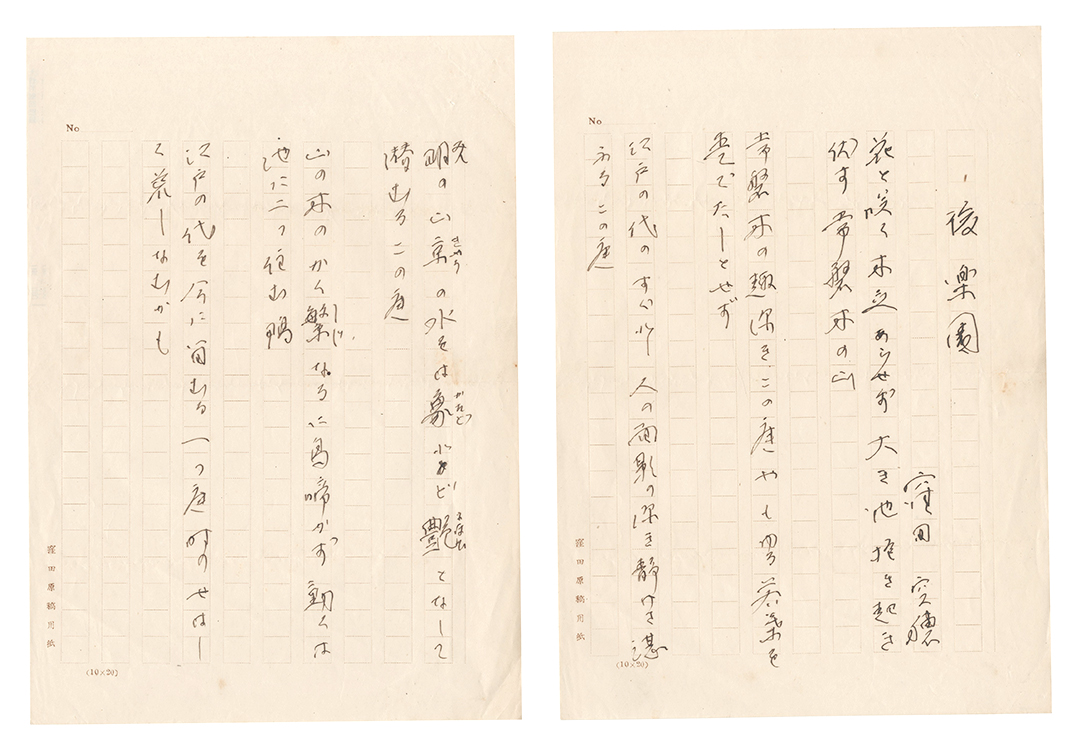 No
後楽園
窪田空穂
花と咲く木立あらせず大き池抱き起き
伏す常磐木の山
常磐木の趣深きこの庭やもゆる若葉を
愛でたしとせず
江戸の代のすぐれし人の面影の深き静けさ湛
ふるこの庭
窪田原稿用紙
(10×20)
No
明の山京の水をば象れど艶となして
潜むるこの庭
山の木のかく繁なるに鳥啼かず動くは
池に二つ住む鴨
江戸の代を今に留むる一つ庭時のせはし
く荒しなむかも
窪田原稿用紙
(10×20)